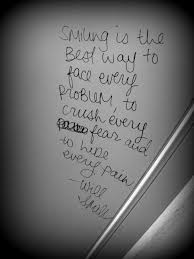 Smiling is the
Best way to
face every
problem, to
crush every
fear and
to hide
every pain
- will